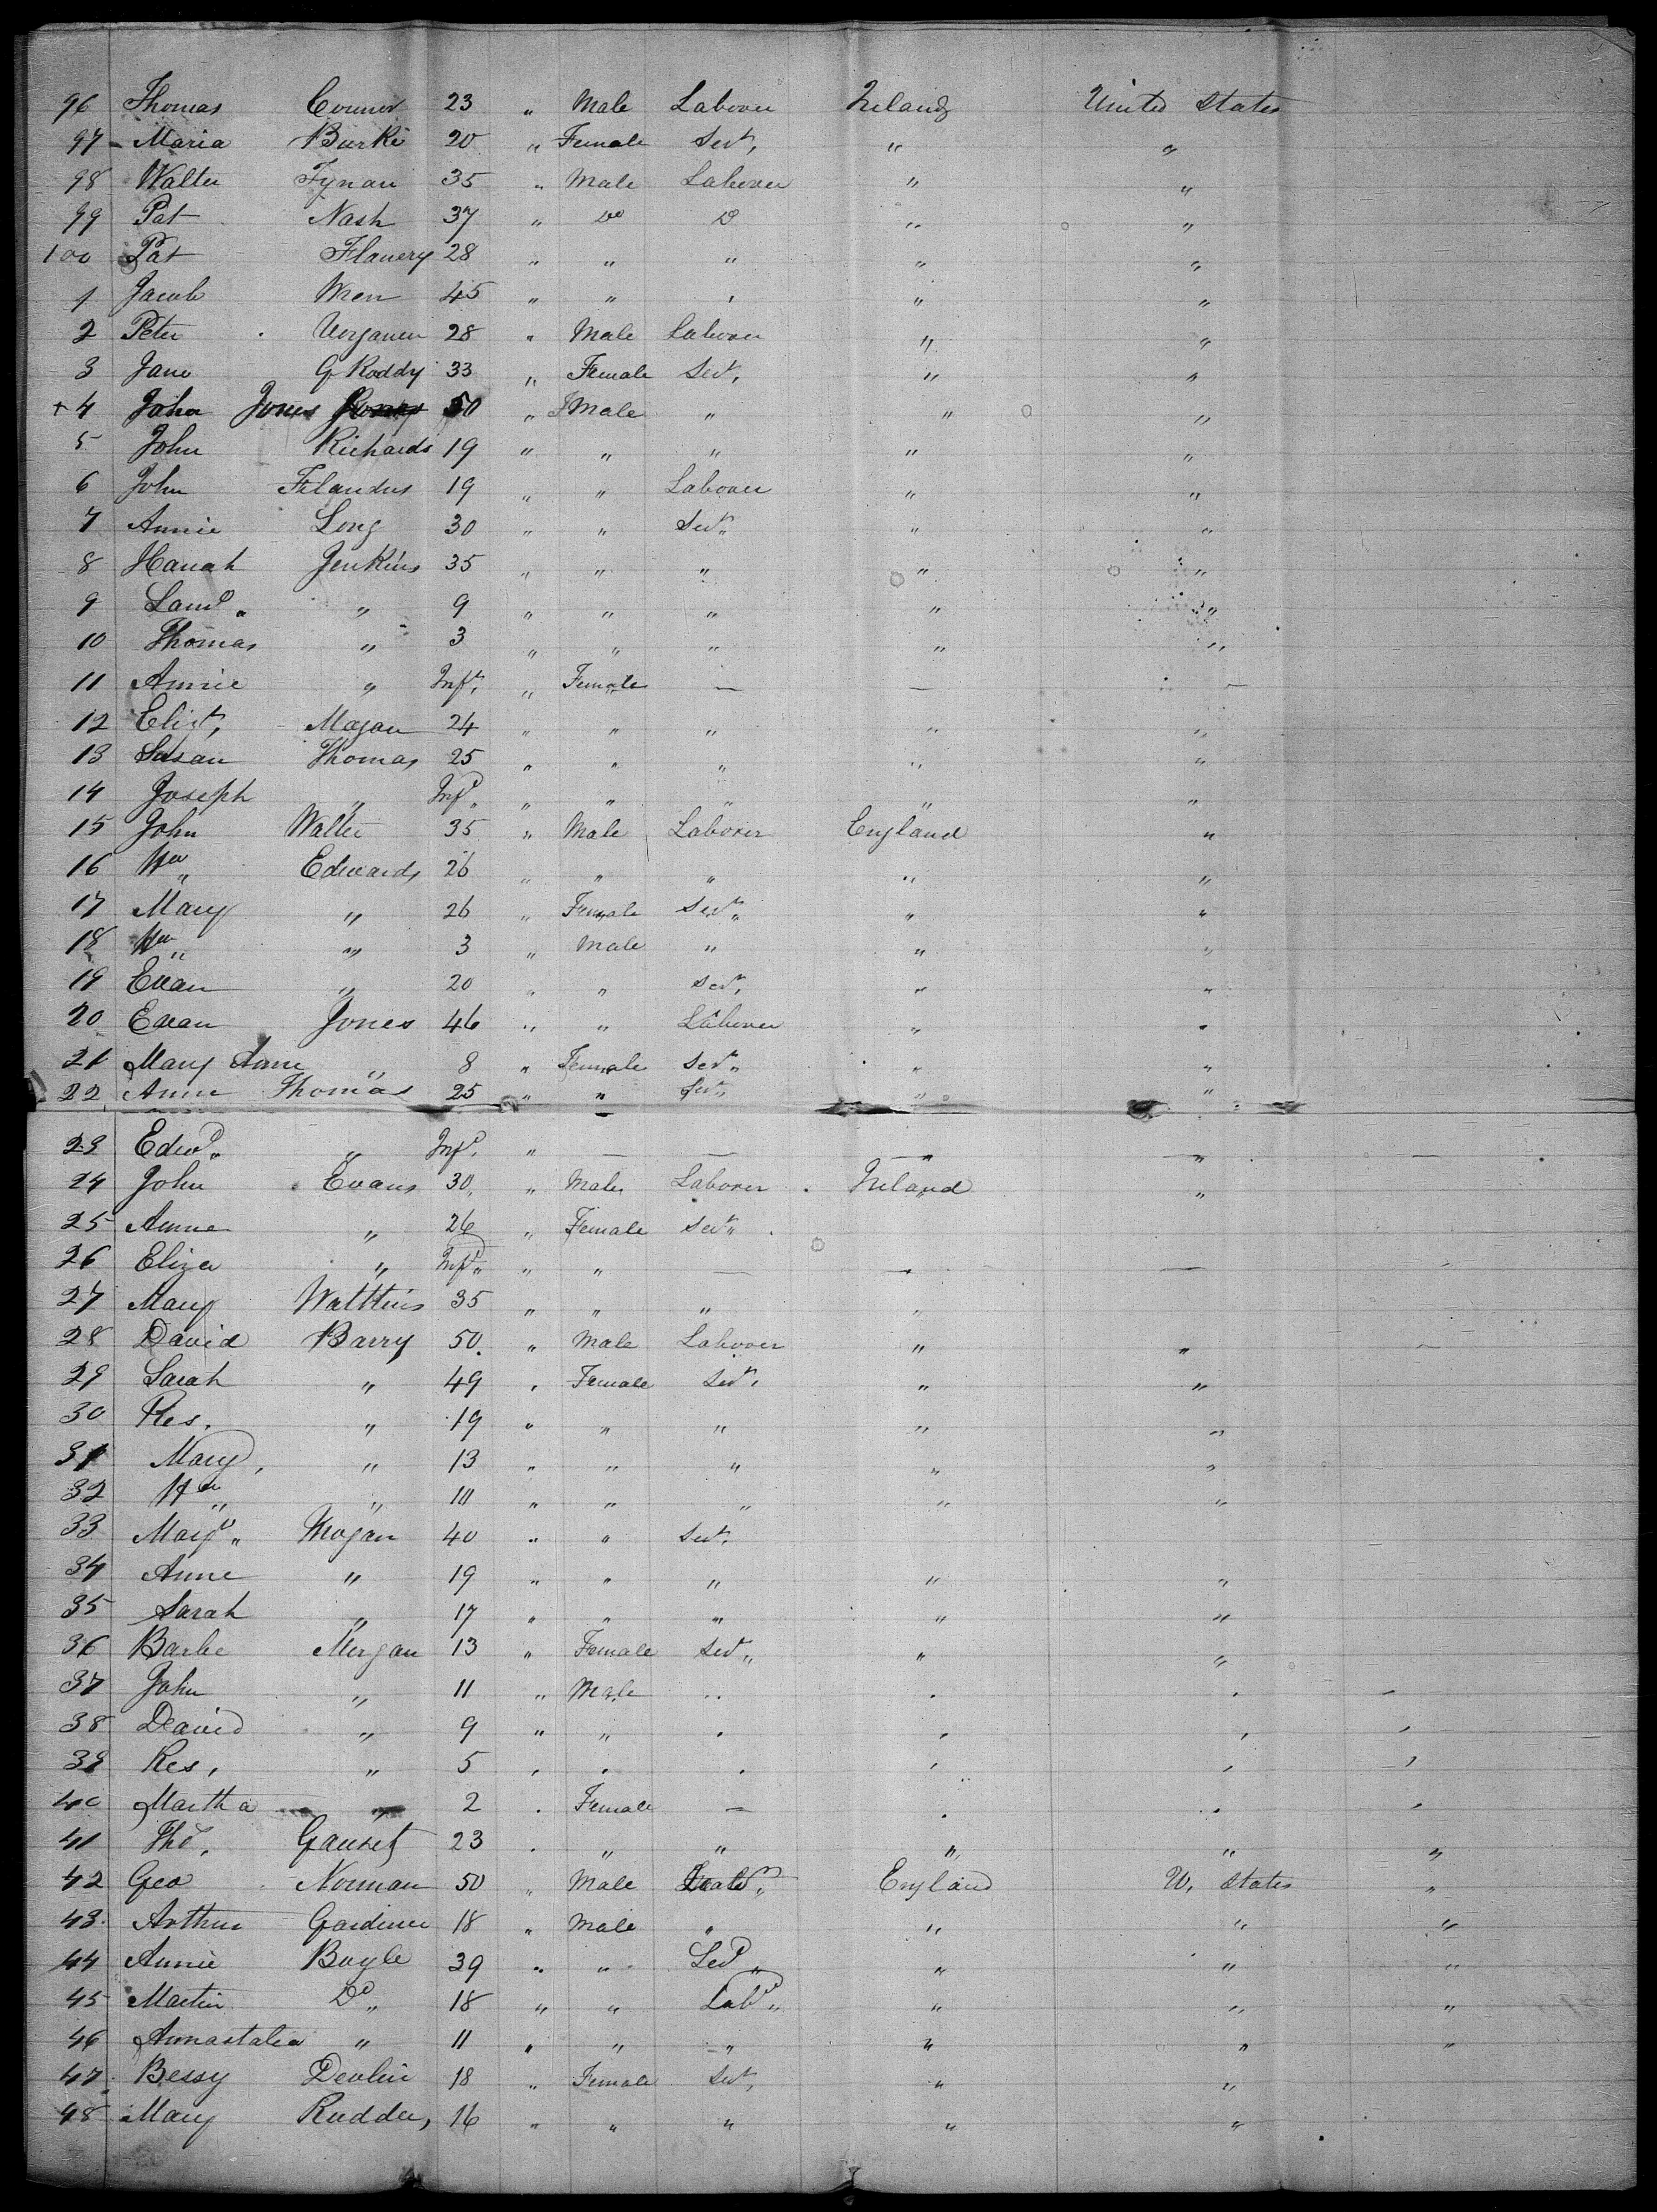 96 Thomas Connor 23 " Male Labover Ireland United States
97 Maria Burke 20 " Female Sert, " "
98 Walter Tynan 35 " Male Labover " "
99 Pat Nash 37 " Do D " "
100 Pat Flanery 28 " " " " "
1 Jacob Wren 45 " " " " "
2 Peter 28 " Male Labover " "
3 Jane G Roddy 33 " Female Sert, " "
+ 4 John Jones 50 " Male " " "
5 John Richards 19 " " " " "
6 John Filandus 19 " " Labover " "
7 Annie Long 30 " " Sert " "
8 Hanah Jenkins 35 " " " " "
9 Saml " 9 " " " " "
10 Thomas " 3 " " " " "
11 Annie " Inft, " Female — — —
12 Elizt, Mogan 24 " " " " "
13 Susan Thomas 25 " " " " "
14 Joseph " Inft " " " " "
15 John Walter 35 " Male Laborer England "
16 Wm Edwards 26 " " " " "
17 Mary " 26 " Female Sert " "
18 Wm " 3 " Male " " "
19 Evan " 20 " " Sert, " "
20 Evan Jones 46 " " Labover " "
21 Mary Anne " 8 " Female Sert " "
22 Anne Thomas 25 " " Sert " "
23 Edwd " Inft " — — — —
24 John Evans 30 " Male Laborer Ireland "
25 Anne " 26 " Female Sert
26 Eliza " Inft " " — — —
27 Mary Watthins 35 " " " "
28 David Barry 50 " Male Labover " "
29 Sarah " 49 " Female Sert, " "
30 Res, " 19 " " " " "
31 Mary, " 13 " " " " "
32 Wm " 10 " " " " "
33 Margt Mogan 40 " " Sert,
34 Anne " 19 " " " " "
35 Sarah " 17 " " " " "
36 Barbe Morgan 13 " Female Sert " "
37 John " 11 " Male " " "
38 David " 9 " " " " " "
39 Res, " 5 " " " " " "
40 Martha " 2 " Female — " " "
41 Tho, 23 " " " " " "
42 Geo Norman 50 " Male England U, States "
43 Arthur Gardiner 18 " Male " " " "
44 Annie Boyle 39 " " Sed " " "
45 Martin Do 18 " " Labr " " "
46 Annastatea " 11 " " " " " "
47 Bessy Devlin 18 " Female Sert, " "
48 Mary Rudden, 16 " " " " "